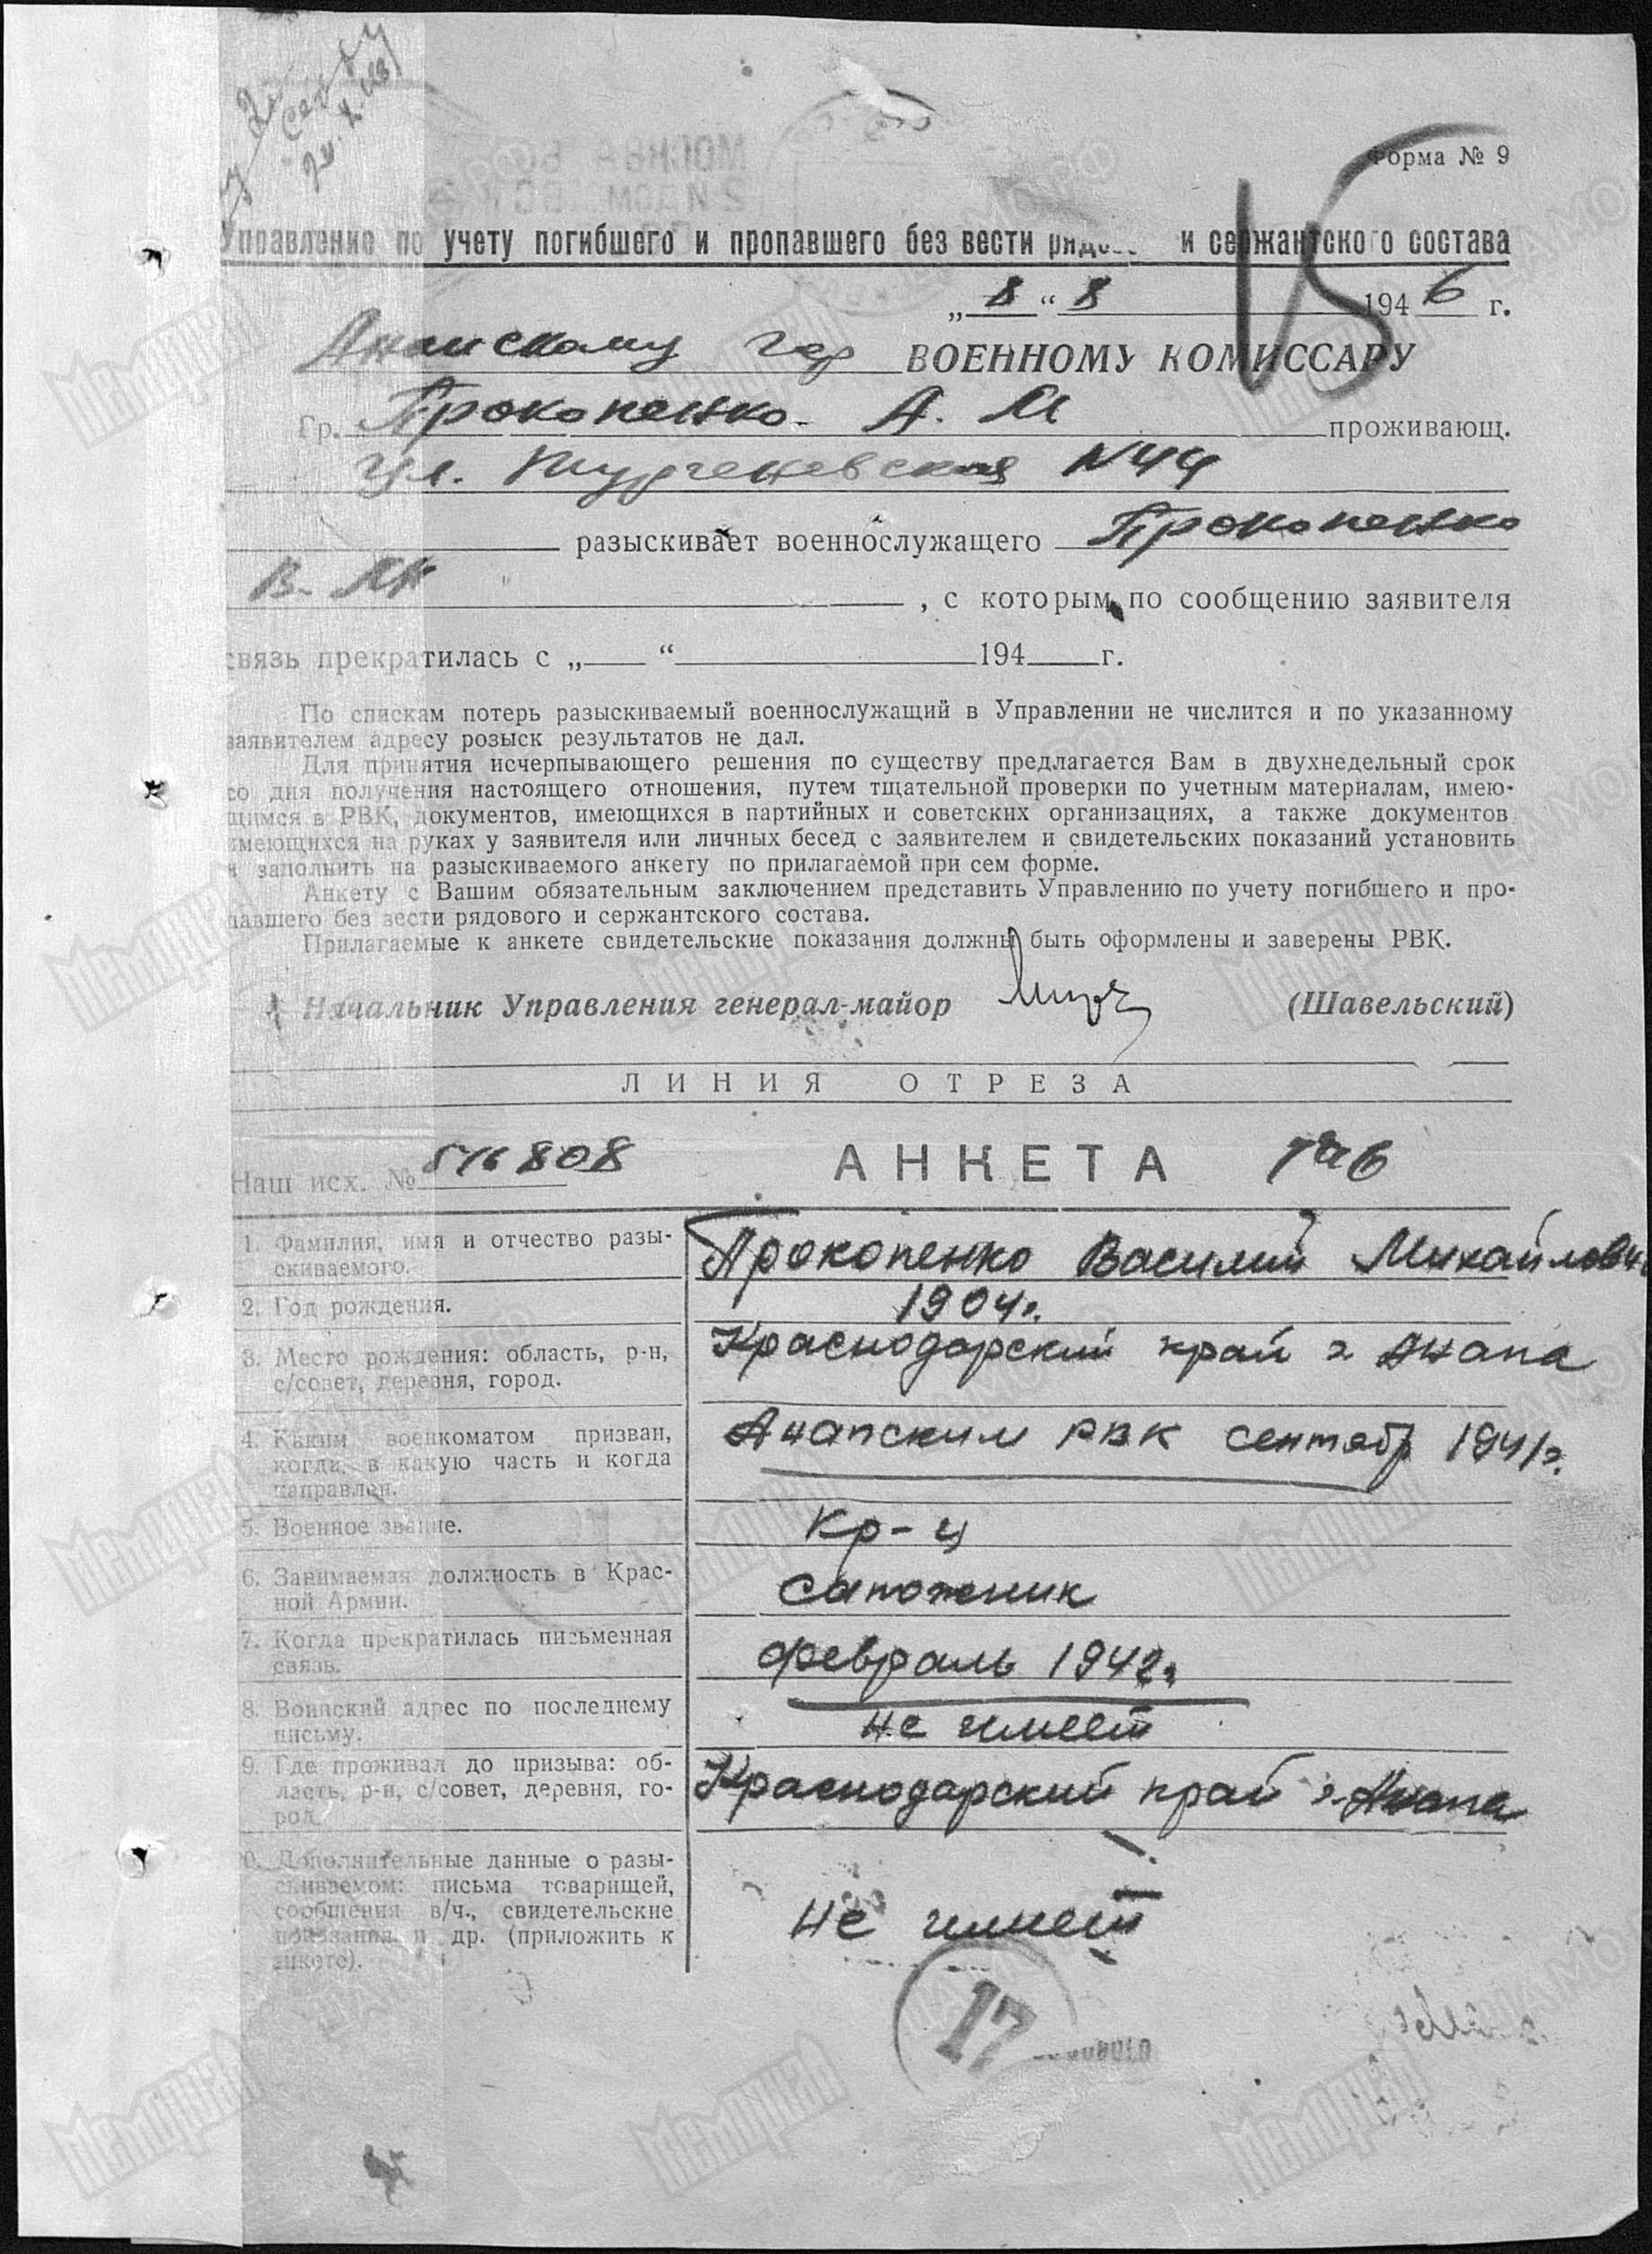 Форма № 9
Управление по учету погибшего и пропавшего без вести и сержантского состава
„ 8 “ 8 1946 г.
Анапскому гор ВОЕННОМУ КОМИССАРУ
15
Гр. Прокопенко А. М проживающ.
ул. Тургеневская N44
разыскивает военнослужащего Прокопенко
В. М
, с которым по сообщению заявителя
связь прекратилась с „ “ 194 г.
По спискам потерь разыскиваемый военнослужащий в Управлении не числится и по указанному
заявителем адресу розыск результатов не дал.
Для принятия исчерпывающего решения по существу предлагается Вам в двухнедельный срок
со дня получения настоящего отношения, путем тщательной проверки по учетным материалам, имею-
щимся в РВК, документов, имеющихся в партийных и советских организациях, а также документов
имеющихся на руках у заявителя или личных бесед с заявителем и свидетельских показаний установить
и заполнить на разыскиваемого анкету по прилагаемой при сем форме.
Анкету с Вашим обязательным заключением представить Управлению по учету погибшего и про-
павшего без вести рядового и сержантского состава.
Прилагаемые к анкете свидетельские показания должны быть оформлены и заверены РВК.
Начальник Управления генерал-майор (Шавельский)
ЛИНИЯ ОТРЕЗА
Наш исх. № 516808 АНКЕТА
1. Фамилия, имя и отчество разы-
скиваемого.
Прокопенко Василий Михайлович
2. Год рождения.
1904г.
3. Место рождения: область, р-н,
с/совет, деревня, город.
Краснодарский край г Анапа
4. Каким военкоматом призван,
когда, в какую часть и когда
направлен.
Анапским РВК сентябр 1941г.
5. Военное звание.
Кр-ц
6. Занимаемая должность в Крас-
ной Армии.
Сапожник
7. Когда прекратилась письменная
связь.
февраль 1942г
8. Воинский адрес по последнему
письму.
не имеет
9. Где проживал до призыва: об-
ласть, р-н, с/совет, деревня, го-
род.
Краснодарский край г. Анапа
10. Дополнительные данные о разы-
скиваемом: письма товарищей,
сообщения в/ч., свидетельские
показания и др. (приложить к
анкете).
не имеет
17